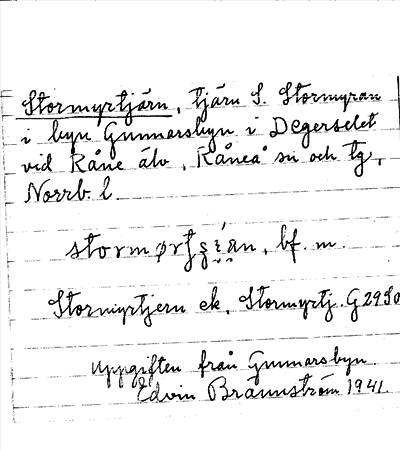 Stormyrtjärn, tjärn S. Stormyran
i byn Gunnarsbyn i Degerselet
vid Råne älv, Råneå sn och tg,
Norrb. l.
bf. m.
Stormyrtjern ek. Stormyrtj. G 2950
Uppgiften från Gunnarsbyn
Edvin Brännström 1941.